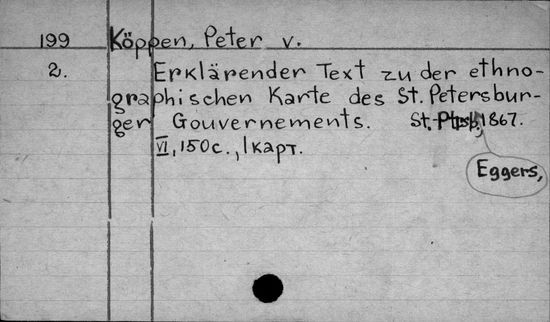 199 Köppen, Peter v.
2. Erklärender Text zu der ethno-
graphischen Karte des St. Petersbur-
ger Gouvernements. St. Ptrsb., 1867.
VI, 150 с., 1 карт.
Eggers,